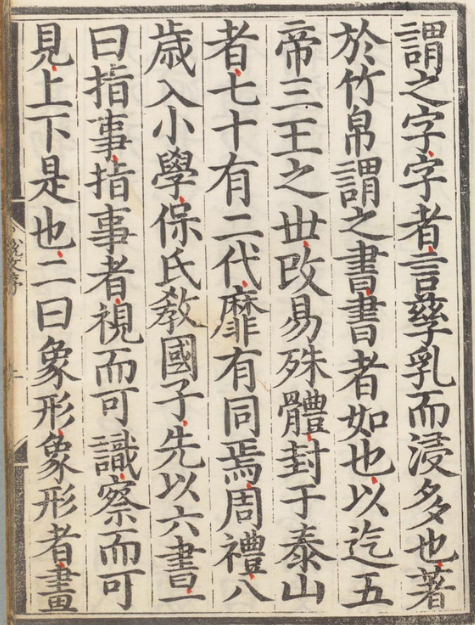 謂之字字者言孳乳而浸多也著
於竹帛謂之書書者如也以迄五
帝三王之世改易殊體封于泰山
者七十有二代靡有同焉周禮八
歳入小學保氏敎國子先以六書一
曰指事指事者視而可識察而可
見上下是也二曰象形象形者畫